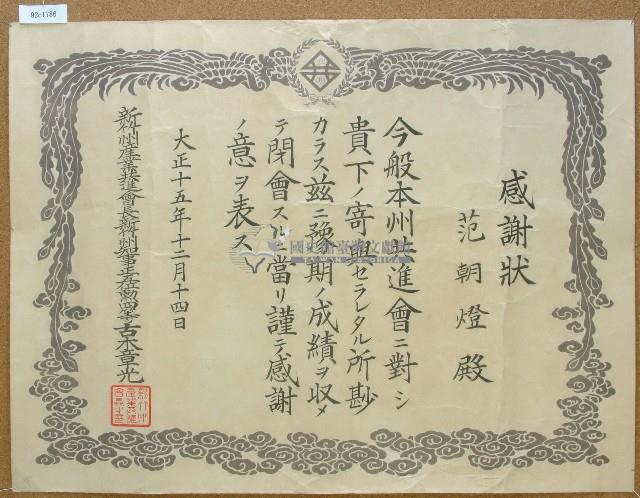 92c1786
感謝狀
范朝燈殿
今般本州共進會ニ對シ
貴下ノ寄與セラレタル所尠
カラス茲ニ豫期ノ成績ヲ收メ
テ閉會スルニ當リ謹テ感謝
ノ意ヲ表ス
大正十五年十二月十四日
新竹州產業共進會長新竹州知事正五位勳四等古木章光
國史館臺灣文獻館
TAIWAN HISTORICA